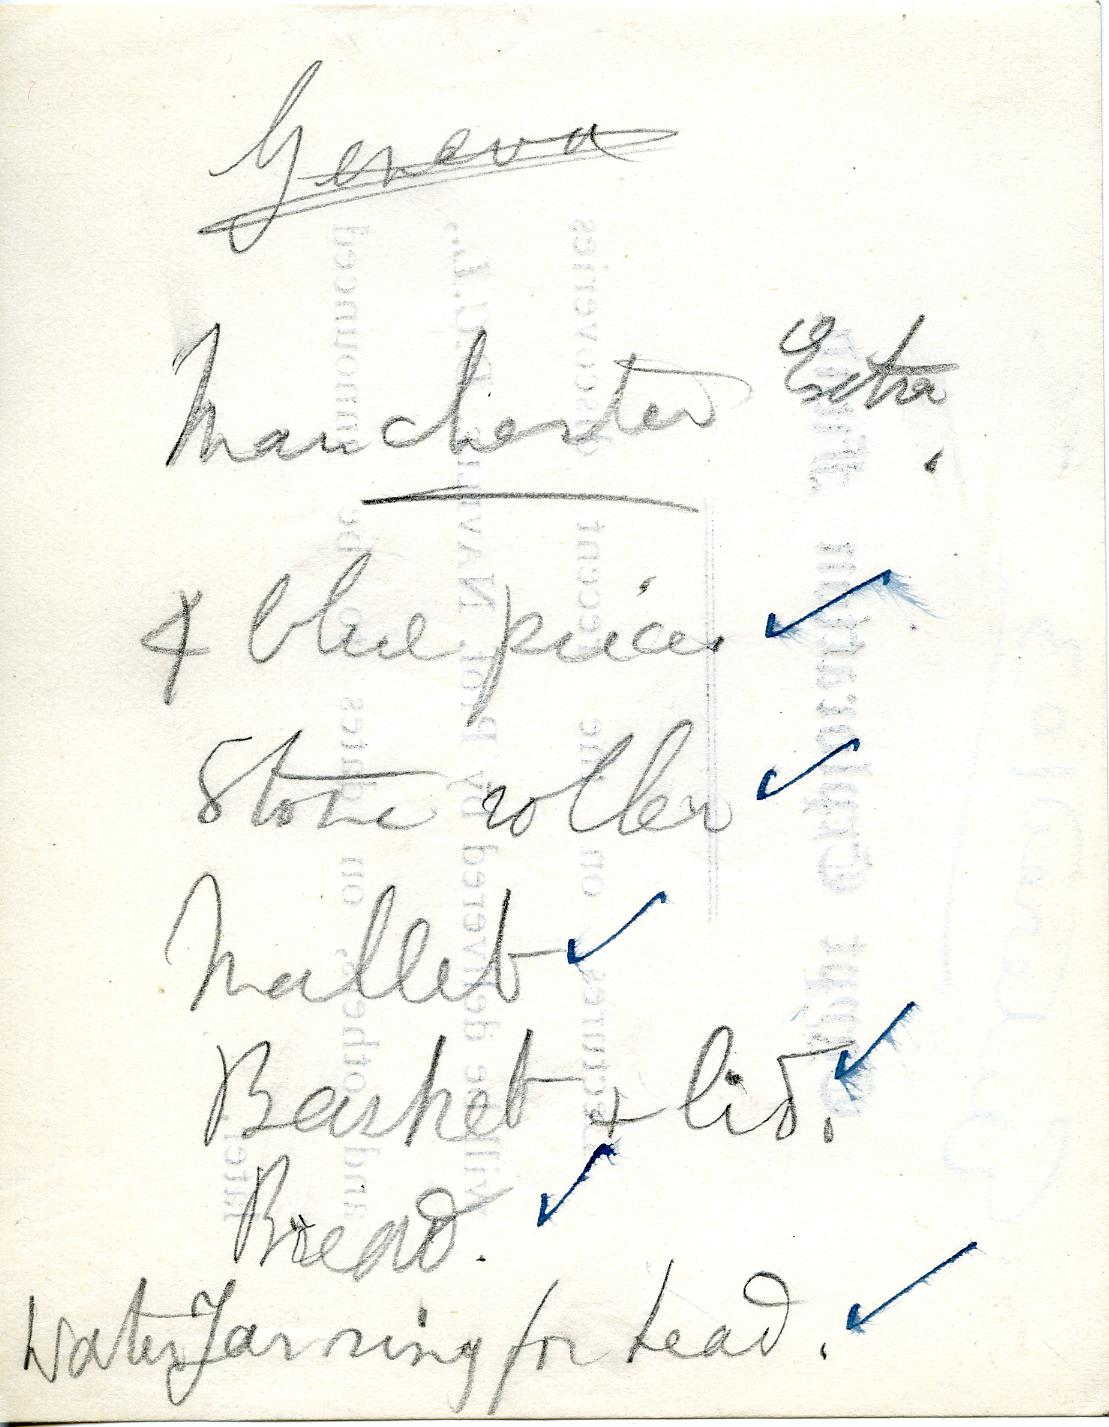 Geneva
Manchester Extra.
4 blue pieces
Stone roller
Mallet
Basket + lid.
Bread.
Water Jar ring for head.